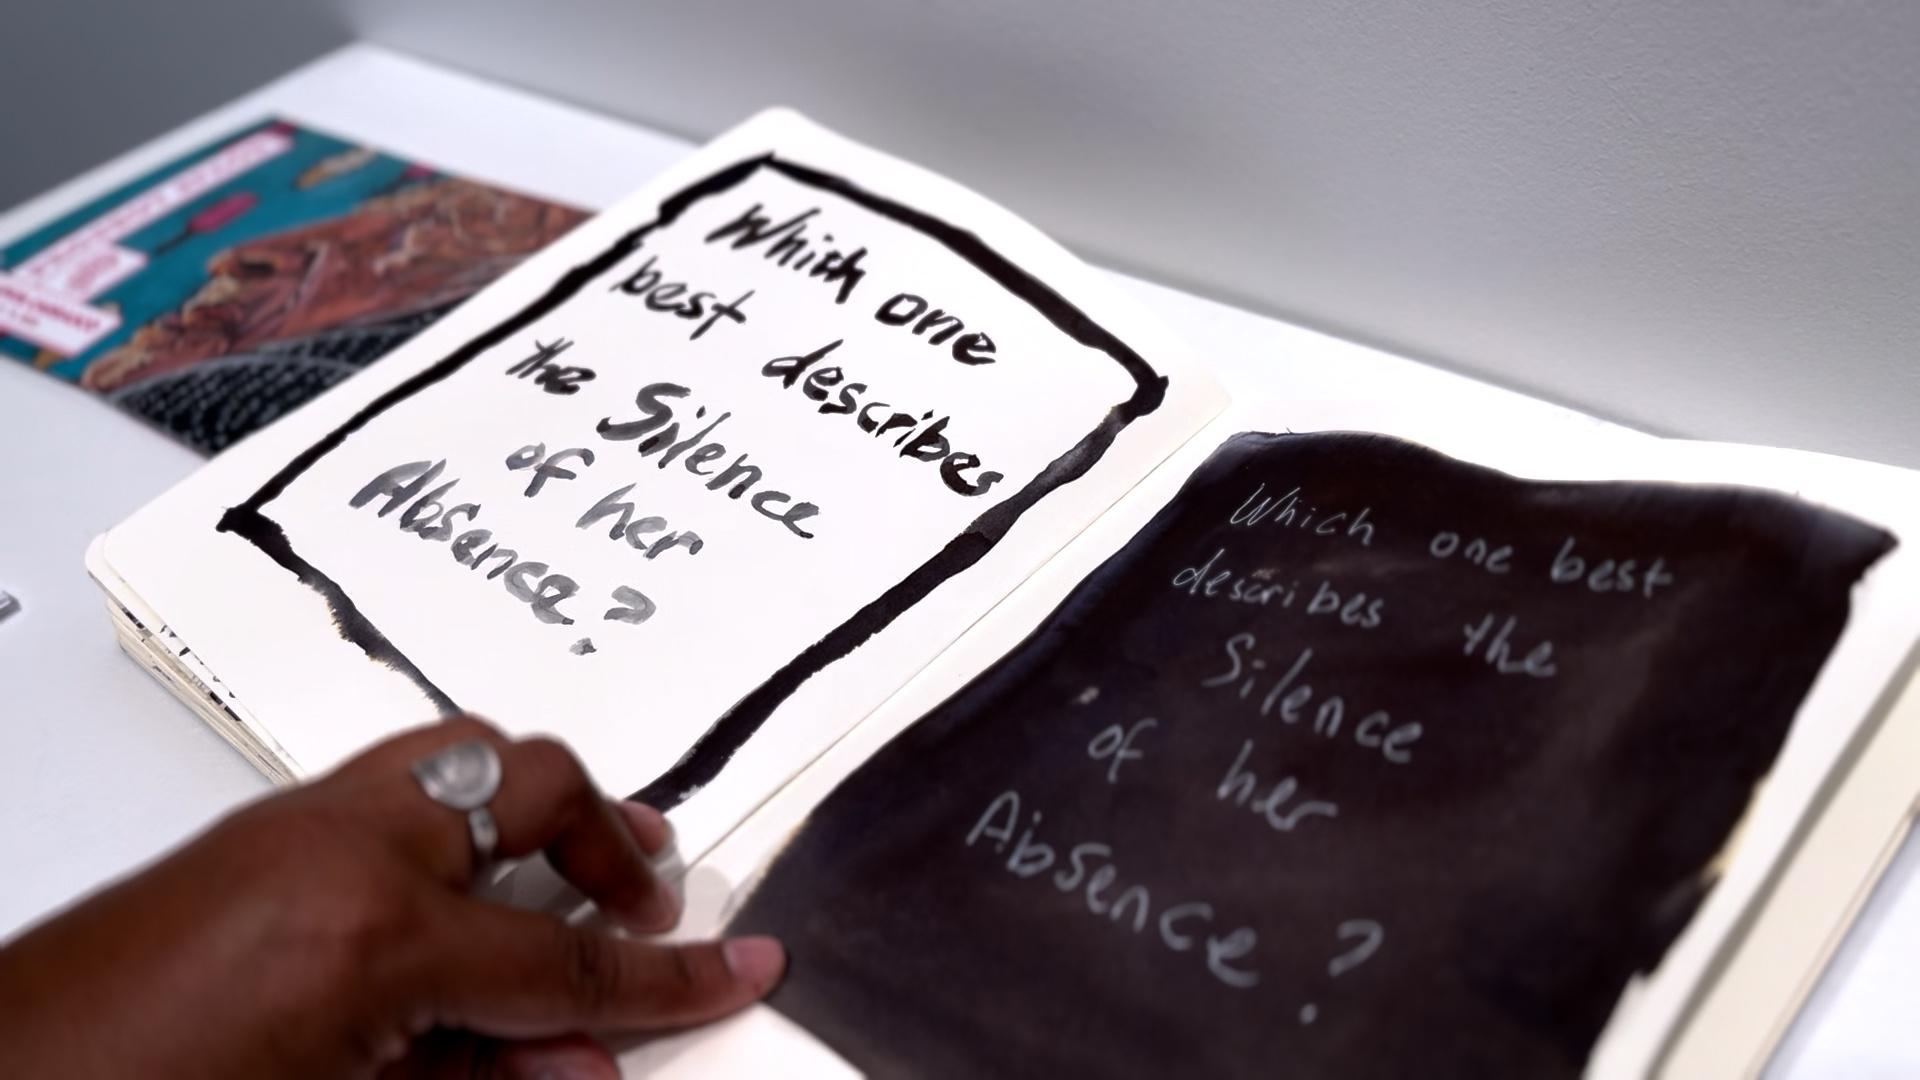 Which one
best describes
the Silence
of her
Absence?
Which one best
describes the
Silence
of her
Absence?